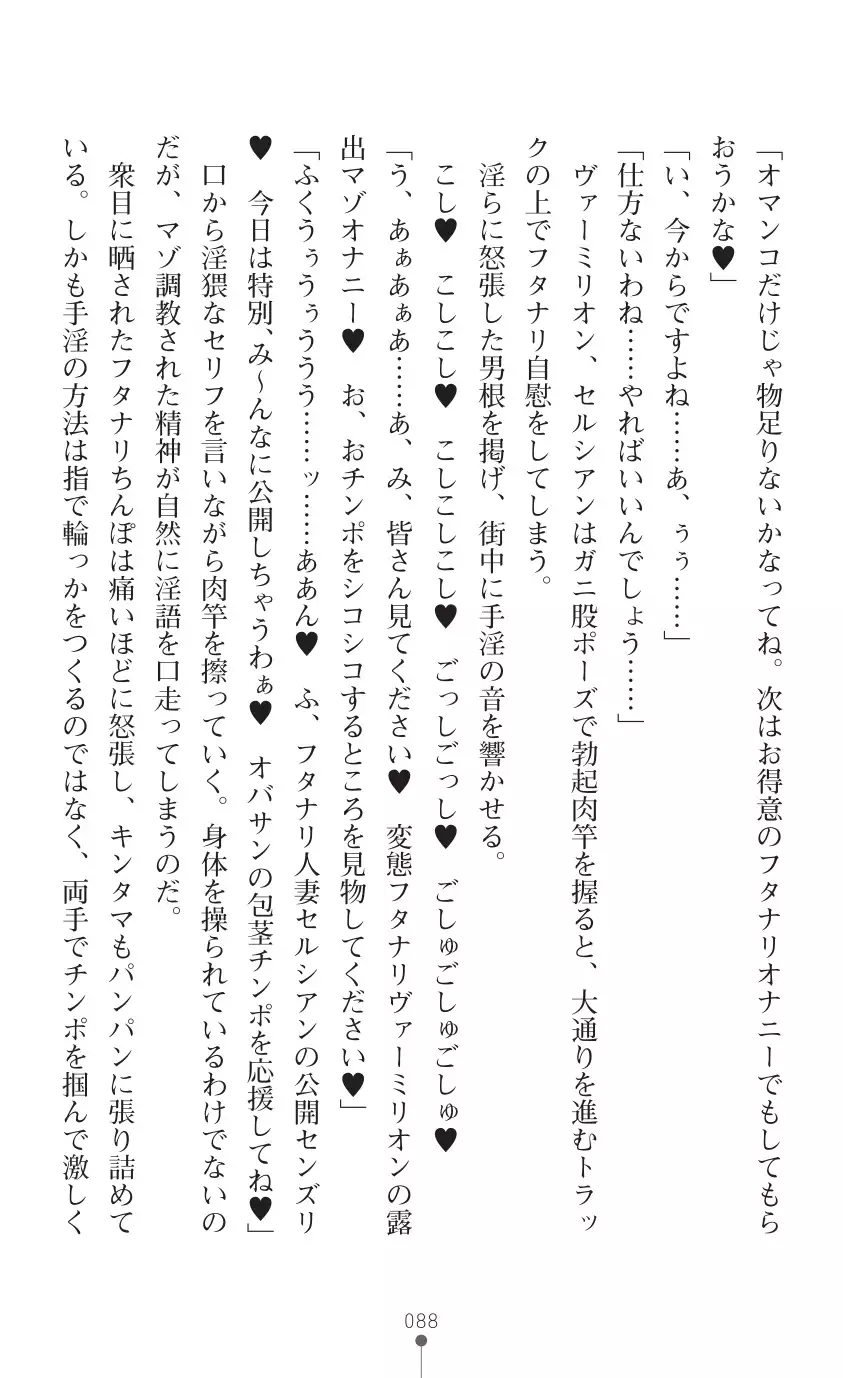 「オマンコだけじゃ物足りないかなってね。次はお得意のフタナリオナニーでもしてもら
おうかな♥」
「い、今からですよね……あ、ぅぅ……」
「仕方ないわね……やればいいんでしょう……」
　ヴァーミリオン、セルシアンはガニ股ポーズで勃起肉竿を握ると、大通りを進むトラッ
クの上でフタナリ自慰をしてしまう。
　淫らに怒張した男根を掲げ、街中に手淫の音を響かせる。
　こし♥　こしこし♥　こしこしこし♥　ごっしごっし♥　ごしゅごしゅごしゅ♥
「う、あぁあぁあ……あ、み、皆さん見てください♥　変態フタナリヴァーミリオンの露
出マゾオナニー♥　お、おチンポをシコシコするところを見物してください♥」
「ふくうぅうぅううう……ッ……ああん♥　ふ、フタナリ人妻セルシアンの公開センズリ
♥　今日は特別、み～んなに公開しちゃうわぁ♥　オバサンの包茎チンポを応援してね♥」
　口から淫猥なセリフを言いながら肉竿を擦っていく。身体を操られているわけでないの
だが、マゾ調教された精神が自然に淫語を口走ってしまうのだ。
　衆目に晒されたフタナリちんぽは痛いほどに怒張し、キンタマもパンパンに張り詰めて
いる。しかも手淫の方法は指で輪っかをつくるのではなく、両手でチンポを掴んで激しく
088